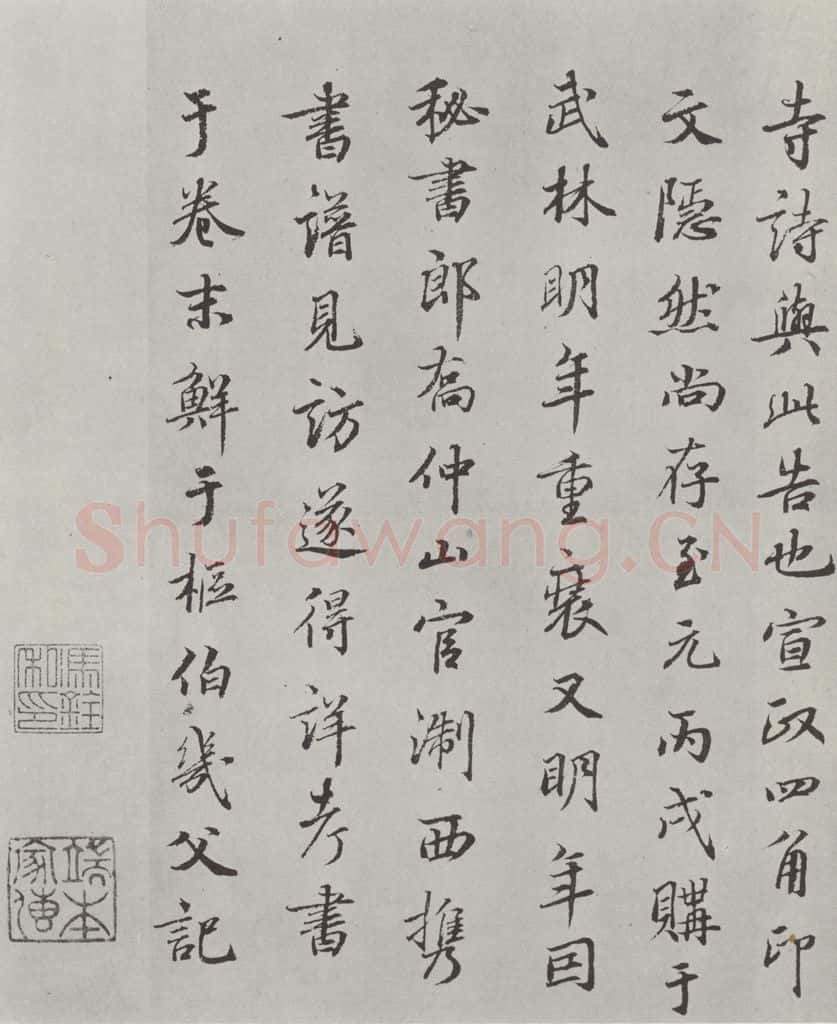 寺詩與此告也宣政四角印
文隱然尚存至元丙戌購于
武林明年重裝又明年囙
秘書郎喬仲山官淛西携
書譜見訪遂得詳考書
于卷末鮮于樞伯幾父記
端本家傳
Shufawang.CN